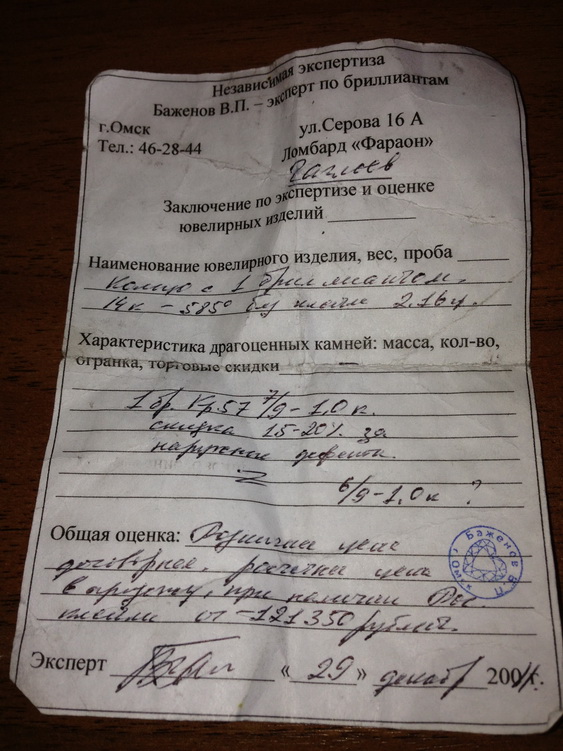 Независимая экспертиза
Баженов В.П. – эксперт по бриллиантам
г.Омск ул.Серова 16 А
Тел.: 46-28-44 Ломбард «Фараон»
Заключение по экспертизе и оценке
ювелирных изделий
Наименование ювелирного изделия, вес, проба
Кольцо с 1 бриллиантом.
14к – 585° без клейма 2,16г.
Характеристика драгоценных камней: масса, кол-во,
огранка, торговые скидки
1 бр. Кр.57 7/9 – 1,0 к.
скидка 15-20% за
наружние дефекты.
6/9 – 1,0 к ?
Общая оценка: Розничная цена
договорная, цена
в при наличии
клейма от – 121350 рублей.
Эксперт «29» декабр 200
Баженов В.П. г.Омск